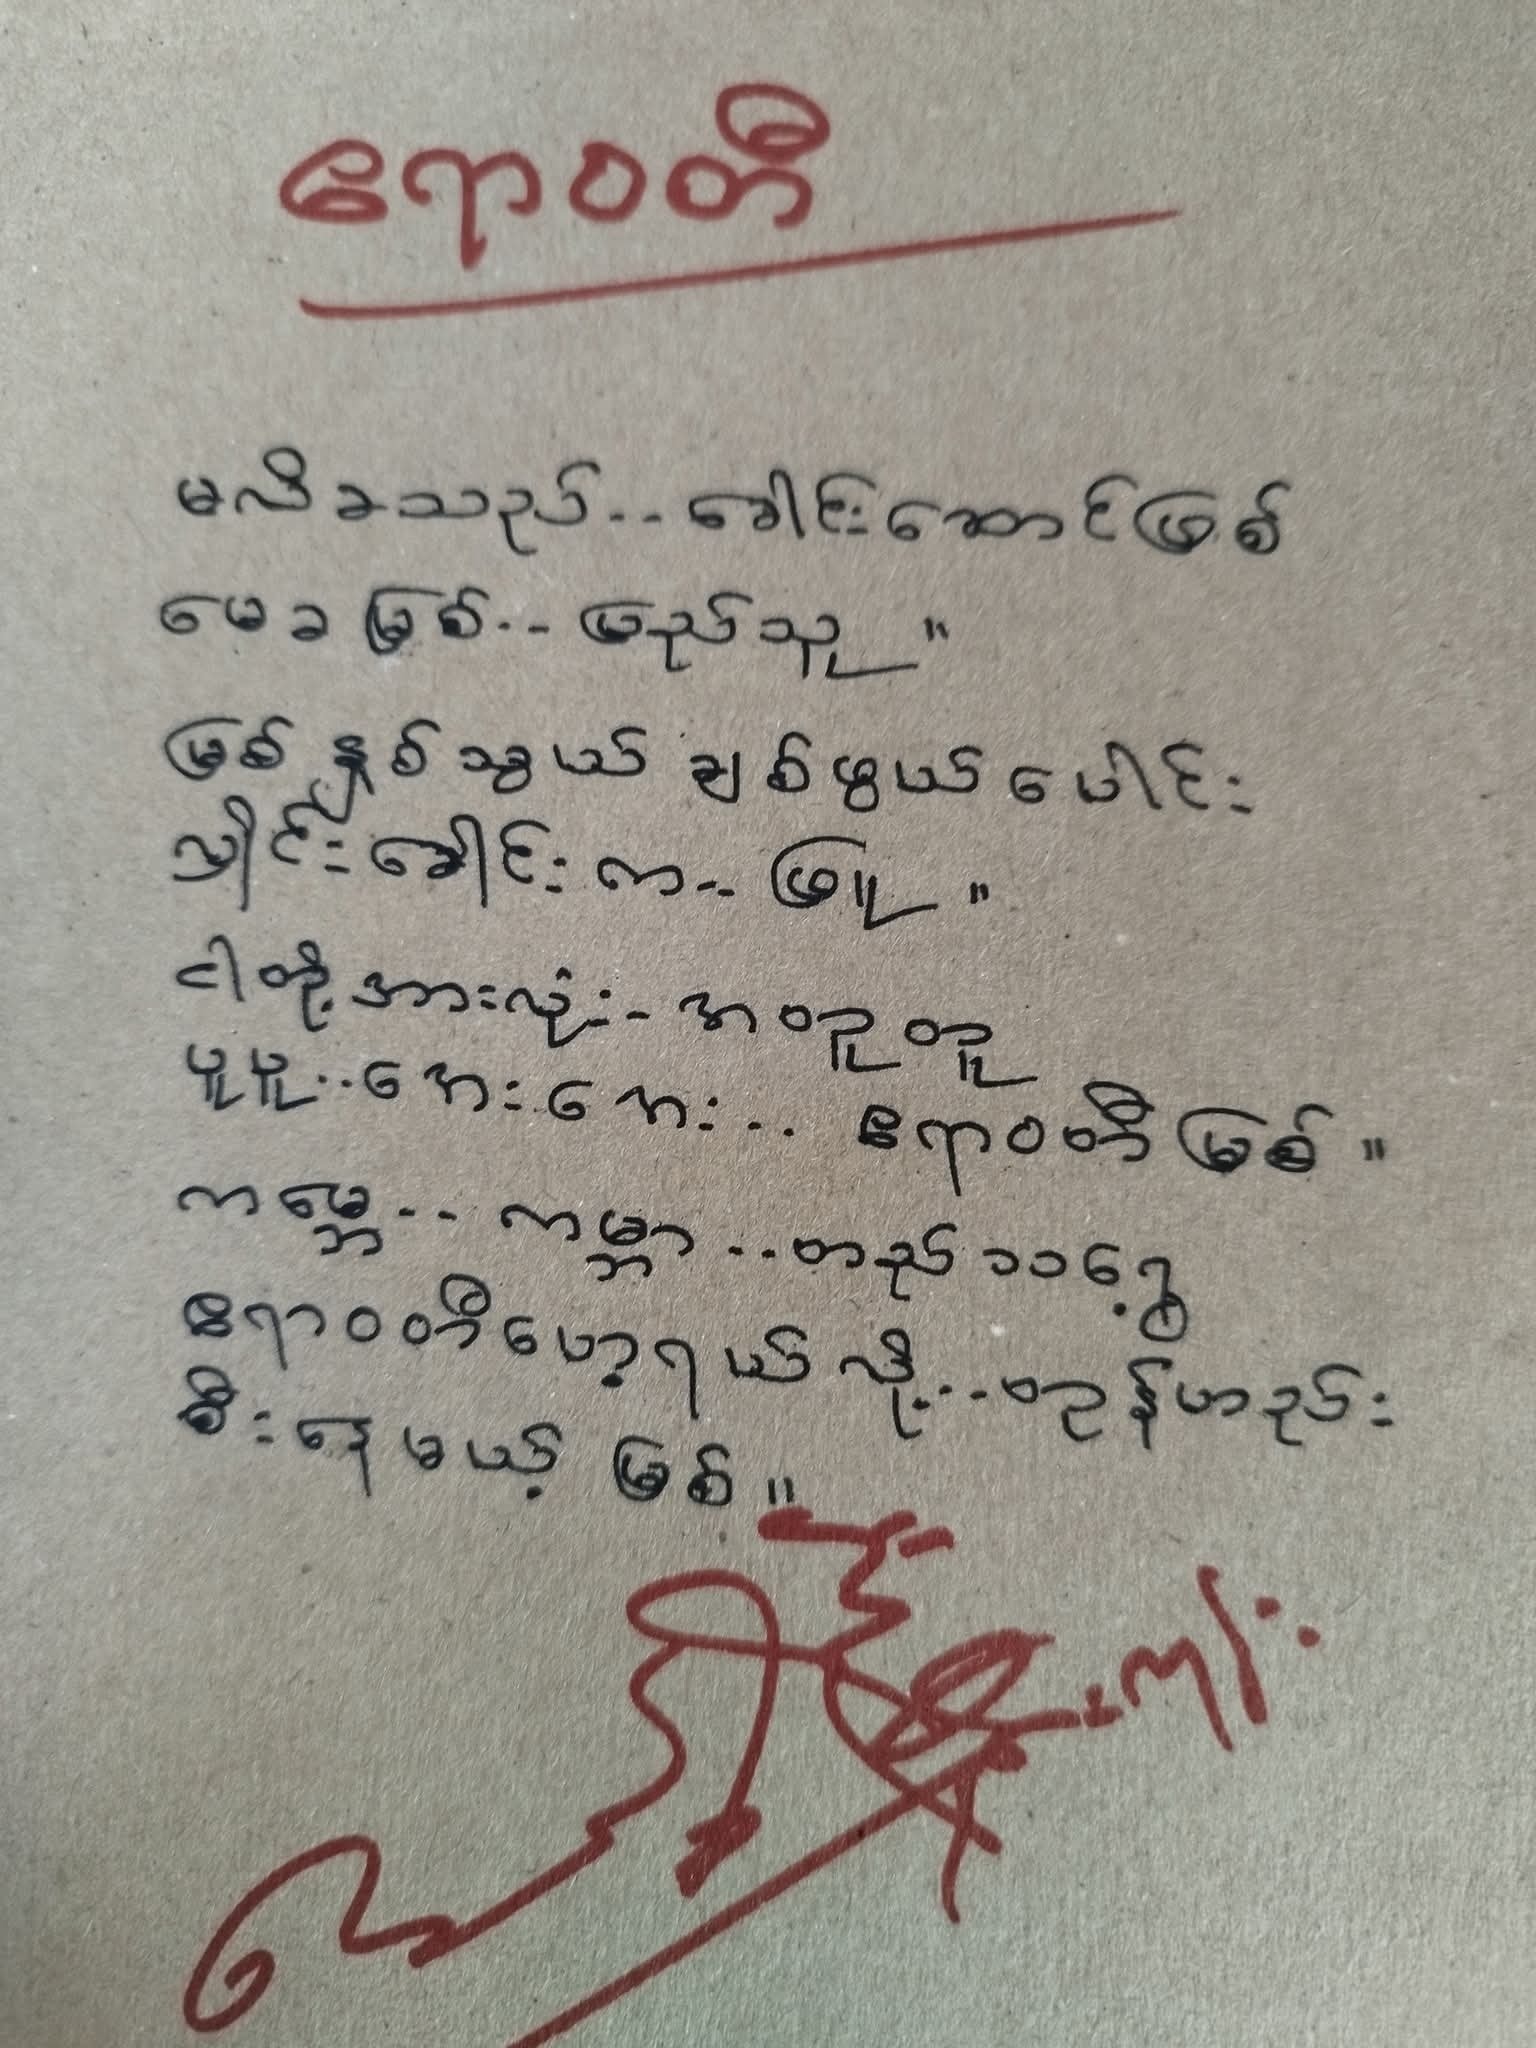 ဧရာဝတီ
မလိခသည်.. ခေါင်းဆောင်ဖြစ်
မေခ မြစ်.. ပြည်သူ။
မြစ်နှစ်သွယ် ချစ်ဖွယ်ပေါင်း
သျှိုင်းခေါင်းက.. ဖြူ။
ငါတို့အားလုံး.. အတူတူ
ပူပူ.. အေးအေး.. ဧရာဝတီမြစ်။
ကမ္ဘေ.. ကမ္ဘာ.. တည်သရွေ့
ဧရာဝတီဟေ့ရယ်လို့... တွန်ဟည်း
စီးနေမယ့် မြစ်။